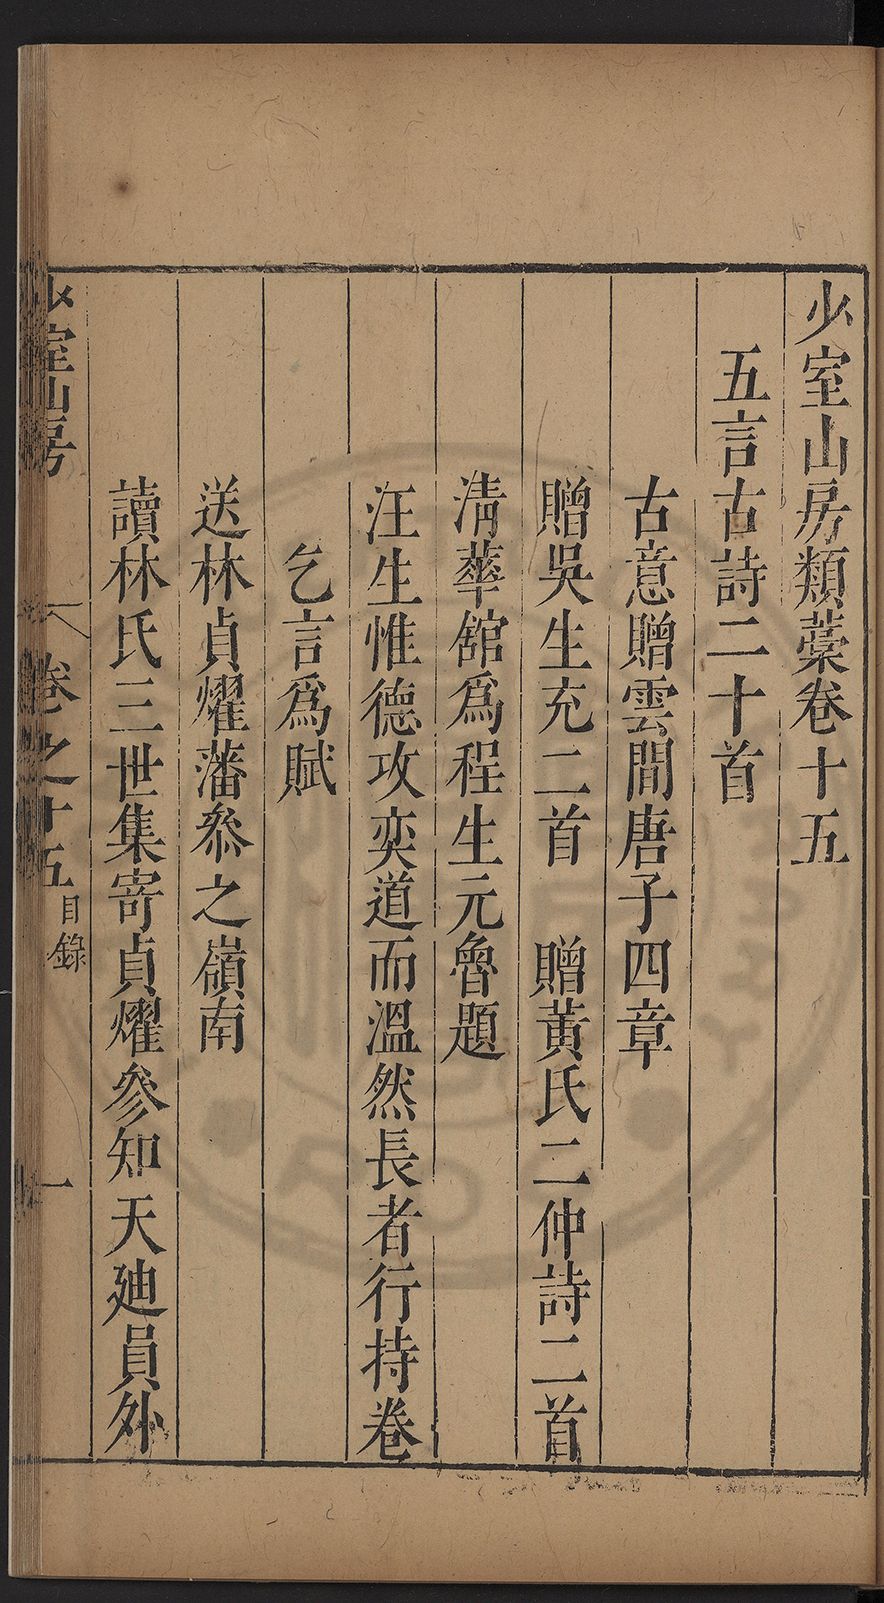 少室山房類藁卷十五
五言古詩二十首
古意贈雲間唐子四章
贈吳生充二首　贈黃氏二仲詩二首
清華舘爲程生元魯題
汪生惟德攻奕道而溫然長者行持卷
乞言爲賦
送林貞耀藩叅之嶺南
讀林氏三世集寄貞耀參知天廸員外
少室山房　卷之十五目錄　一